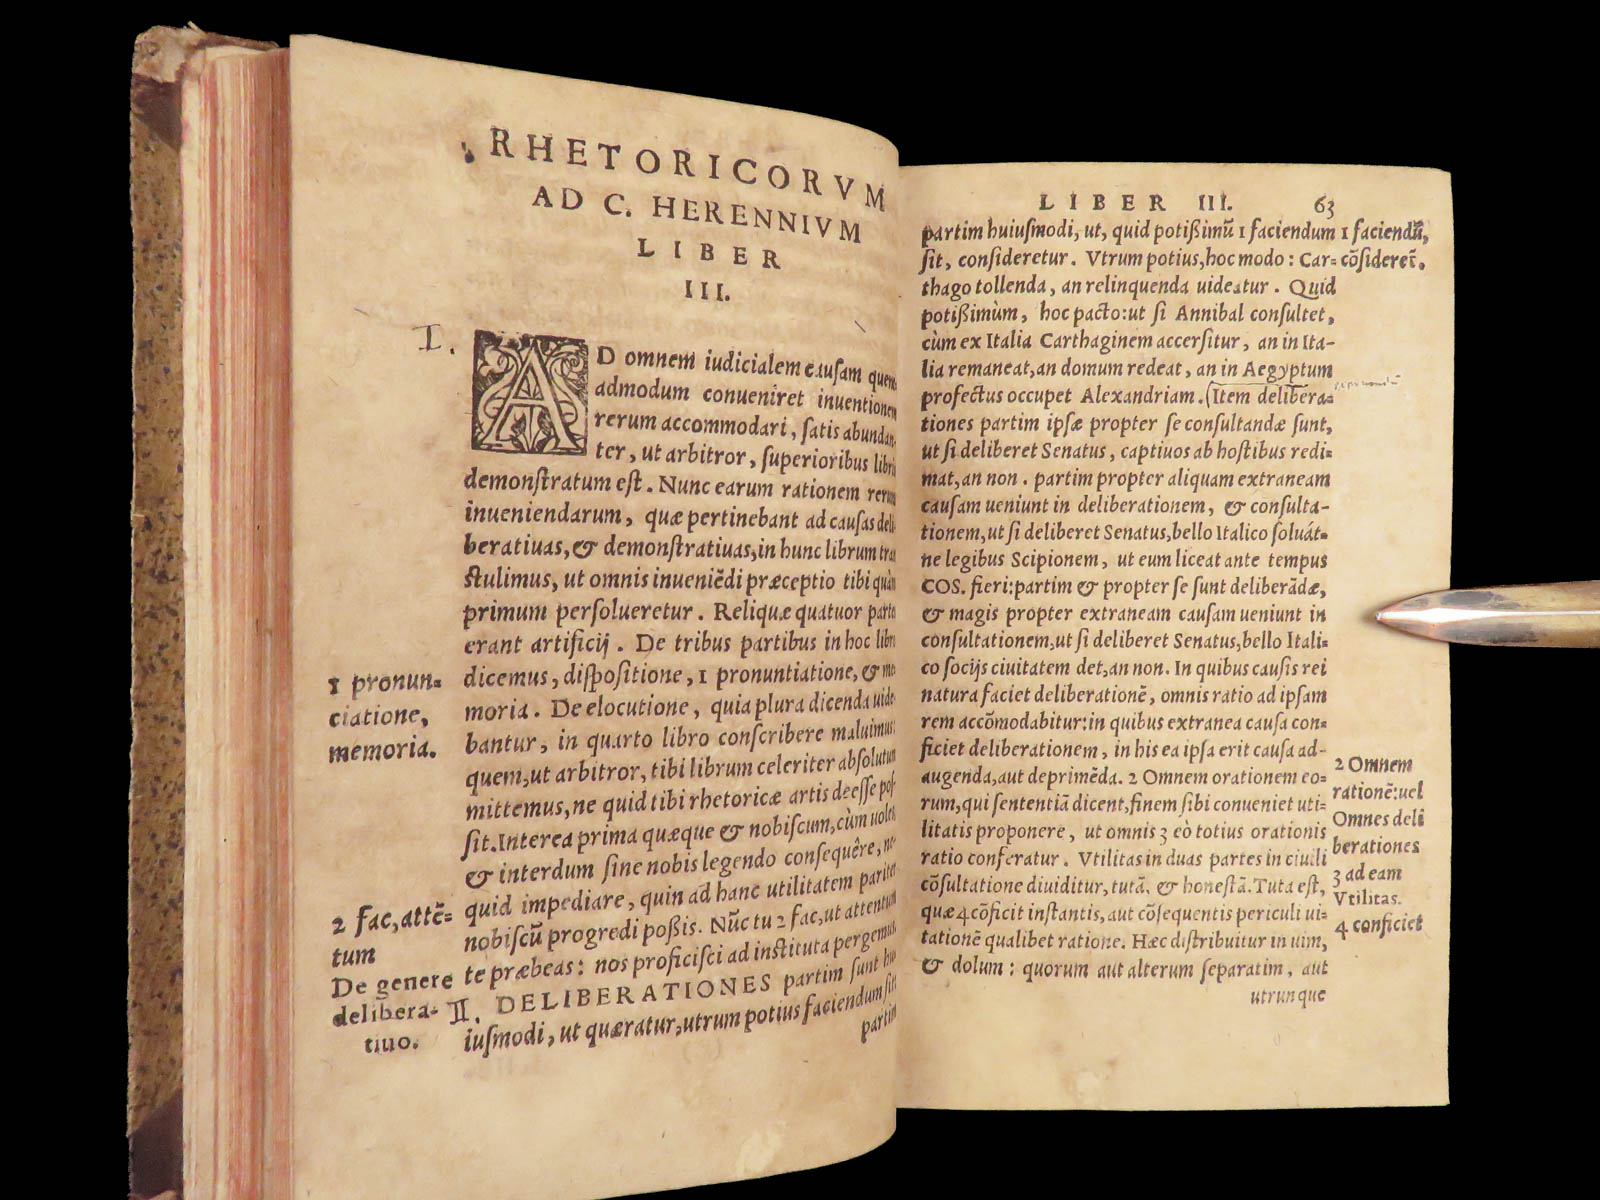 RHETORICORVM
AD C. HERENNIVM
LIBER
III.
I.
AD omnem iudicialem causam quem
admodum conueniret inuentionem
rerum accommodari, ſatis abundan-
ter, ut arbitror, ſuperioribus libris
demonſtratum eſt. Nunc earum rationem rerum
inueniendarum, quæ pertinebant ad cauſas deli-
beratiuas, & demonſtratiuas, in hunc librum tran
ſtulimus, ut omnis inueniẽdi præceptio tibi quàm
primum perſolueretur. Reliquæ quatuor partes
erant artificij. De tribus partibus in hoc libro
dicemus, diſpoſitione, 1 pronuntiatione, & me
moria. De elocutione, quia plura dicenda uide-
bantur, in quarto libro conſcribere maluimus:
quem, ut arbitror, tibi librum celeriter abſolutum
mittemus, ne quid tibi rhetoricæ artis deeſſe poſ-
ſit. Interea prima quæque & nobiſcum, cùm uoles
& interdum ſine nobis legendo conſequêre, ne
quid impediare, quin ad hanc utilitatem pariter
nobiſcũ progredi poßis. Nũc tu 2 fac, ut attentum
te præbeas: nos proficiſci ad inſtituta pergemus.
II. DELIBERATIONES partim ſunt hu
iuſmodi, ut quæratur, utrum potius faciendum ſit
partim
1 pronun=
ciatione,
memoria.
2 fac, attẽ=
tum
De genere
delibera-
tiuo.
LIBER III. 63
partim huiuſmodi, ut, quid potißimũ 1 faciendum
ſit, conſideretur. Vtrum potius, hoc modo: Car=
thago tollenda, an relinquenda uideatur. Quid
potißimùm, hoc pacto: ut ſi Annibal conſultet,
cùm ex Italia Carthaginem accerſitur, an in Ita-
lia remaneat, an domum redeat, an in Aegyptum
profectus occupet Alexandriam. (Item delibera=
tiones partim ipſæ propter ſe conſultandæ ſunt,
ut ſi deliberet Senatus, captiuos ab hoſtibus redi=
mat, an non. partim propter aliquam extraneam
cauſam ueniunt in deliberationem, & conſulta-
tionem, ut ſi deliberet Senatus, bello Italico ſoluát=
ne legibus Scipionem, ut eum liceat ante tempus
COS. fieri: partim & propter ſe ſunt deliberãdæ,
& magis propter extraneam cauſam ueniunt in
conſultationem, ut ſi deliberet Senatus, bello Itali=
co ſocijs ciuitatem det, an non. In quibus cauſis rei
natura faciet deliberationẽ, omnis ratio ad ipſam
rem accõmodabitur: in quibus extranea cauſa con=
ficiet deliberationem, in his ea ipſa erit cauſa ad-
augenda, aut deprimẽda. 2 Omnem orationem eo=
rum, qui ſententiã dicent, finem ſibi conueniet uti=
litatis proponere, ut omnis 3 eò totius orationis
ratio conferatur. Vtilitas in duas partes in ciuili
cõſultatione diuiditur, tutã, & honeſtã. Tuta eſt,
quæ 4 cõficit inſtantis, aut cõſequentis periculi ui=
tationẽ qualibet ratione. Hæc diſtribuitur in uim,
& dolum: quorum aut alterum ſeparatim, aut
utrunque
1 faciendũ,
cõſideret̃.
2 Omnem
rationẽ: uel
Omnes deli
berationes
3 ad eam
Vtilitas.
4 conficiet